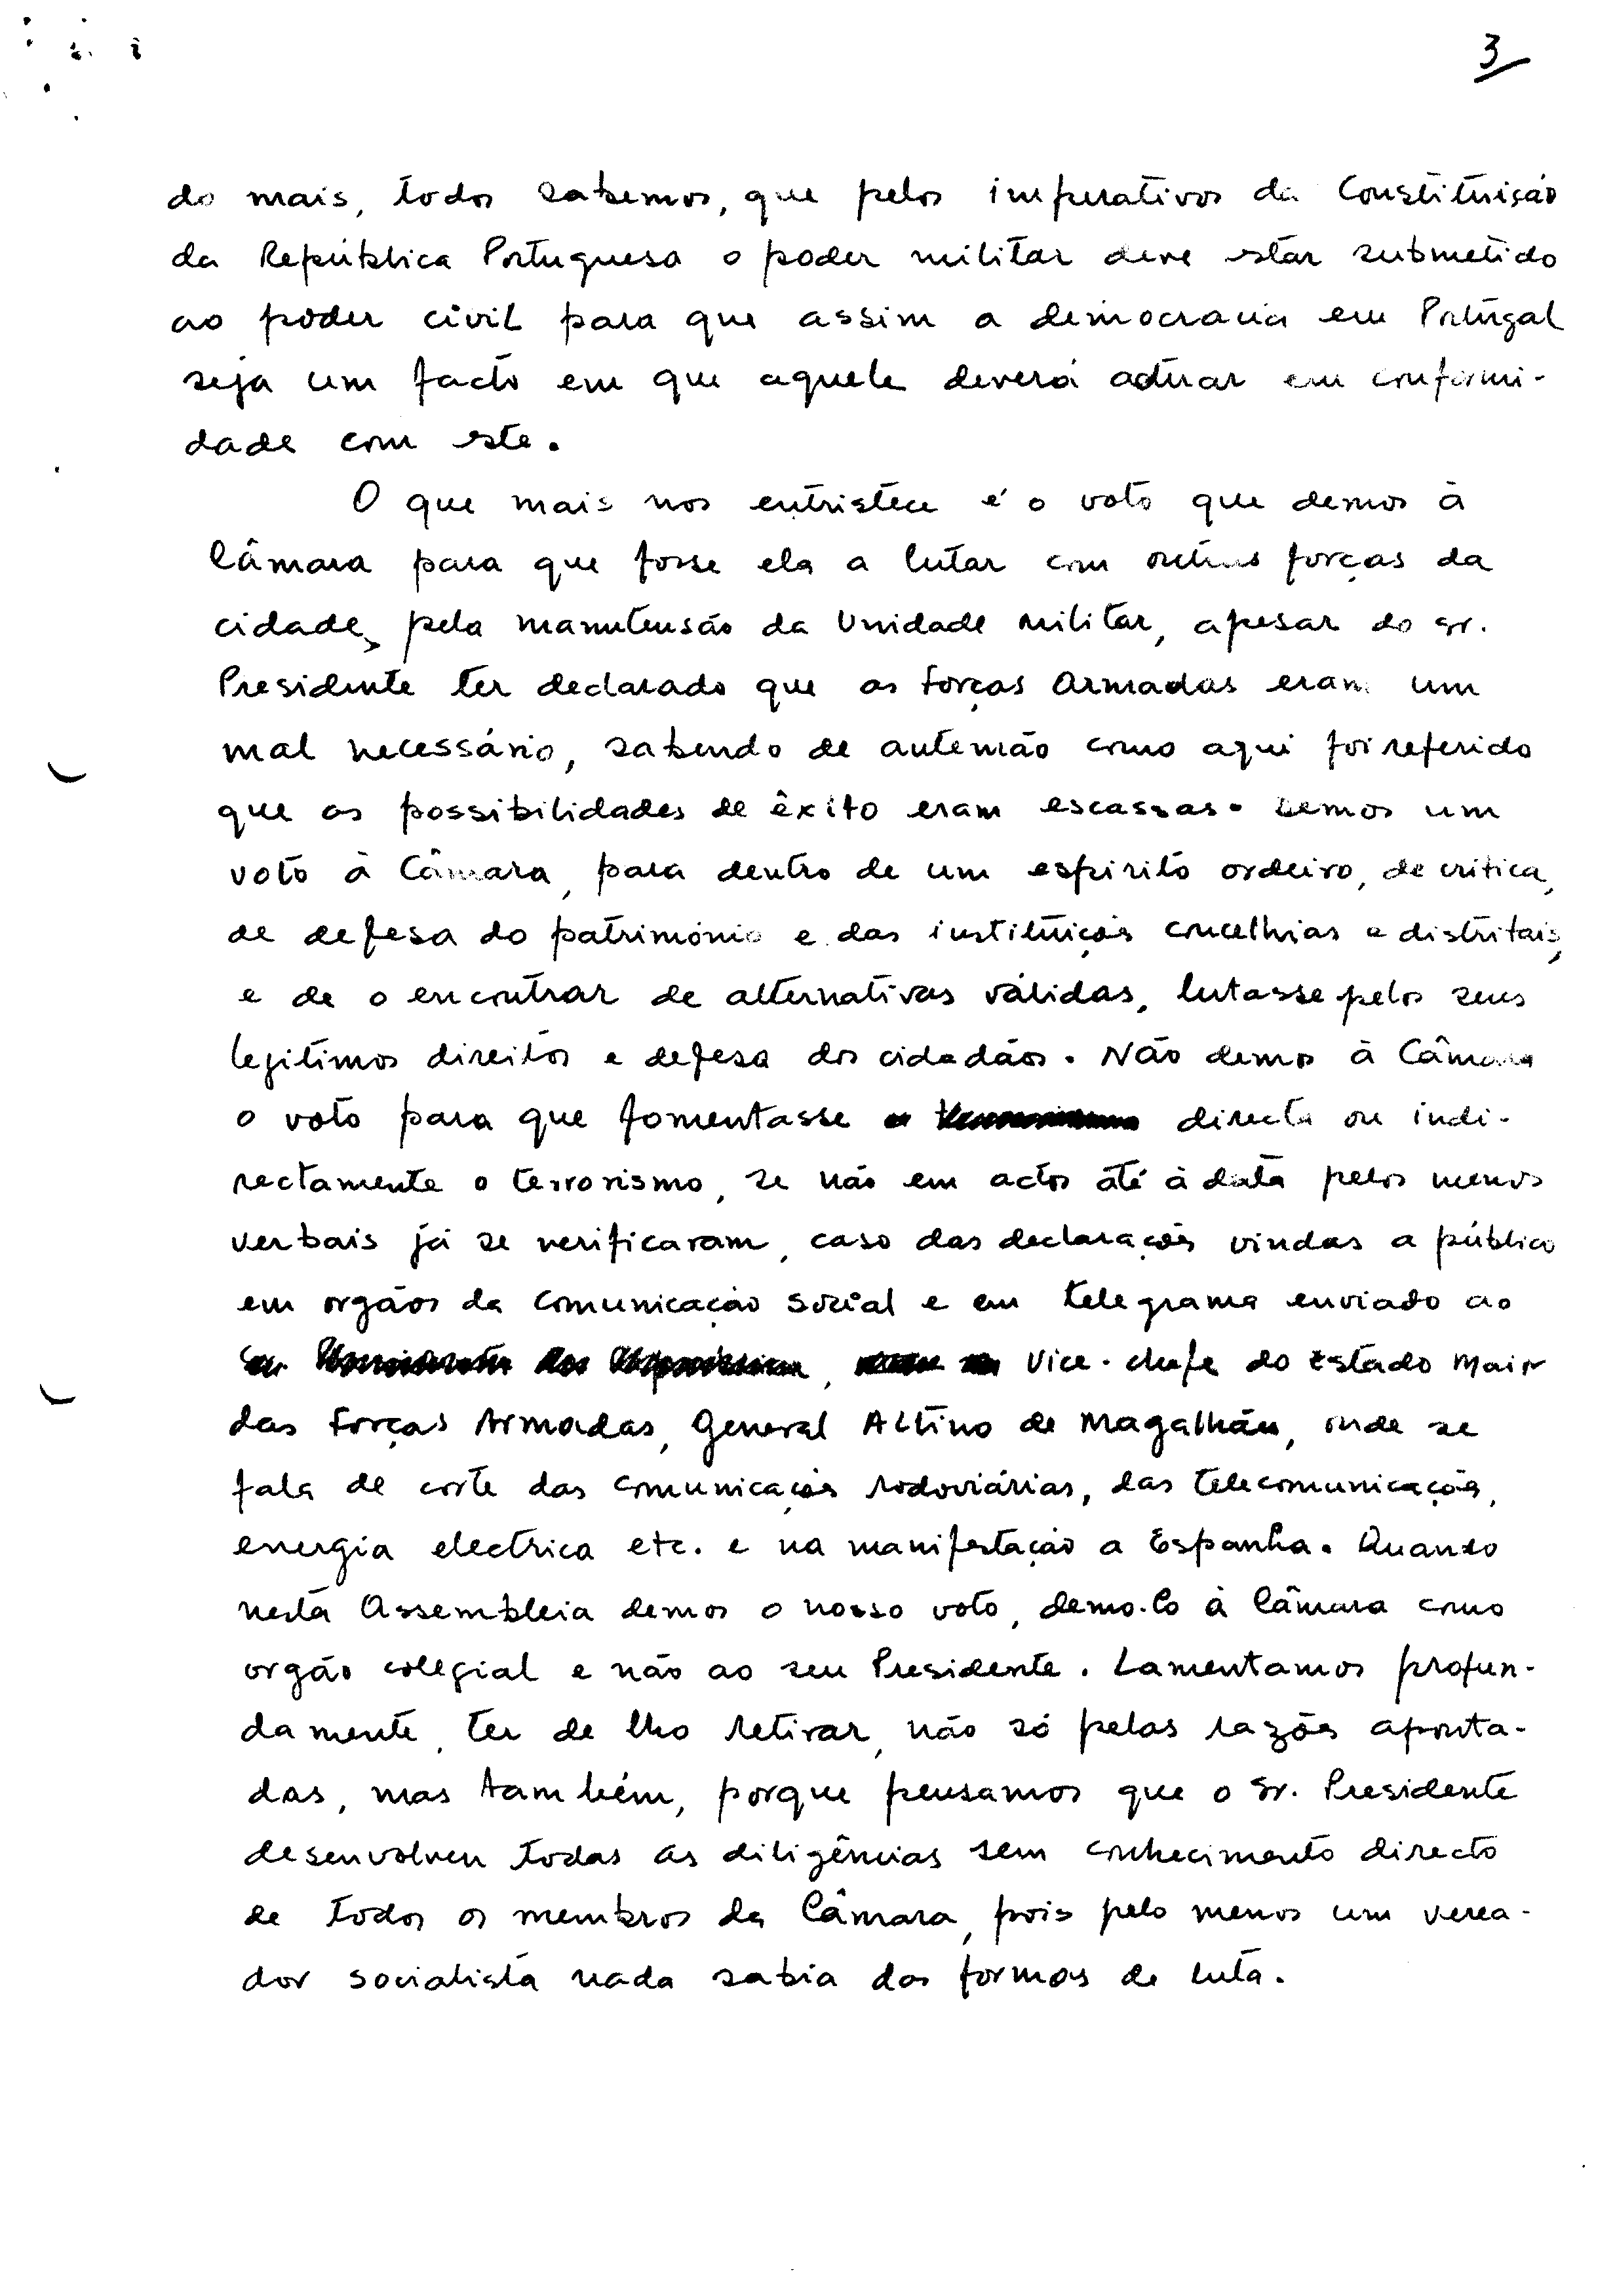 3
do mais, todos sabemos, que pelos imperativos da Constituição
da República Portuguesa o poder militar deve estar submetido
ao poder civil para que assim a democracia em Portugal
seja um facto em que aquele deverá actuar em conformi-
dade com este.
O que mais nos entristece é o voto que demos à
Câmara para que fosse ela a lutar com outras forças da
cidade, pela manutensão da Unidade Militar, apesar do sr.
Presidente ter declarado que as Forças Armadas eram um
mal necessário, sabendo de antemão como aqui foi referido
que as possibilidades de êxito eram escassas. Demos um
voto à Câmara, para dentro de um espirito ordeiro, de critica,
de defesa do património e das instituições concelhias e distritais,
e de o encontrar de alternativas válidas, lutasse pelos seus
legitimos direitos e defesa dos cidadãos. Não demos à Câmara
o voto para que fomentasse directa ou indi-
rectamente o terrorismo, se não em actos até à data pelos menos
verbais já se verificaram, caso das declarações vindas a público
em orgãos da comunicação social e em telegrama enviado ao
, Vice-chefe do Estado Maior
das Forças Armadas, General Altino de Magalhães, onde se
fala de corte das comunicações rodoviárias, das telecomunicações,
energia electrica etc. e na manifestação a Espanha. Quando
nesta Assembleia demos o nosso voto, demo-lo à Câmara como
orgão colegial e não ao seu Presidente. Lamentamos profun-
damente, ter de lho retirar, não só pelas razões aponta-
das, mas também, porque pensamos que o Sr. Presidente
desenvolveu todas as diligências sem conhecimento directo
de todos os membros da Câmara, pois pelo menos um verea-
dor socialista nada sabia das formas de luta.